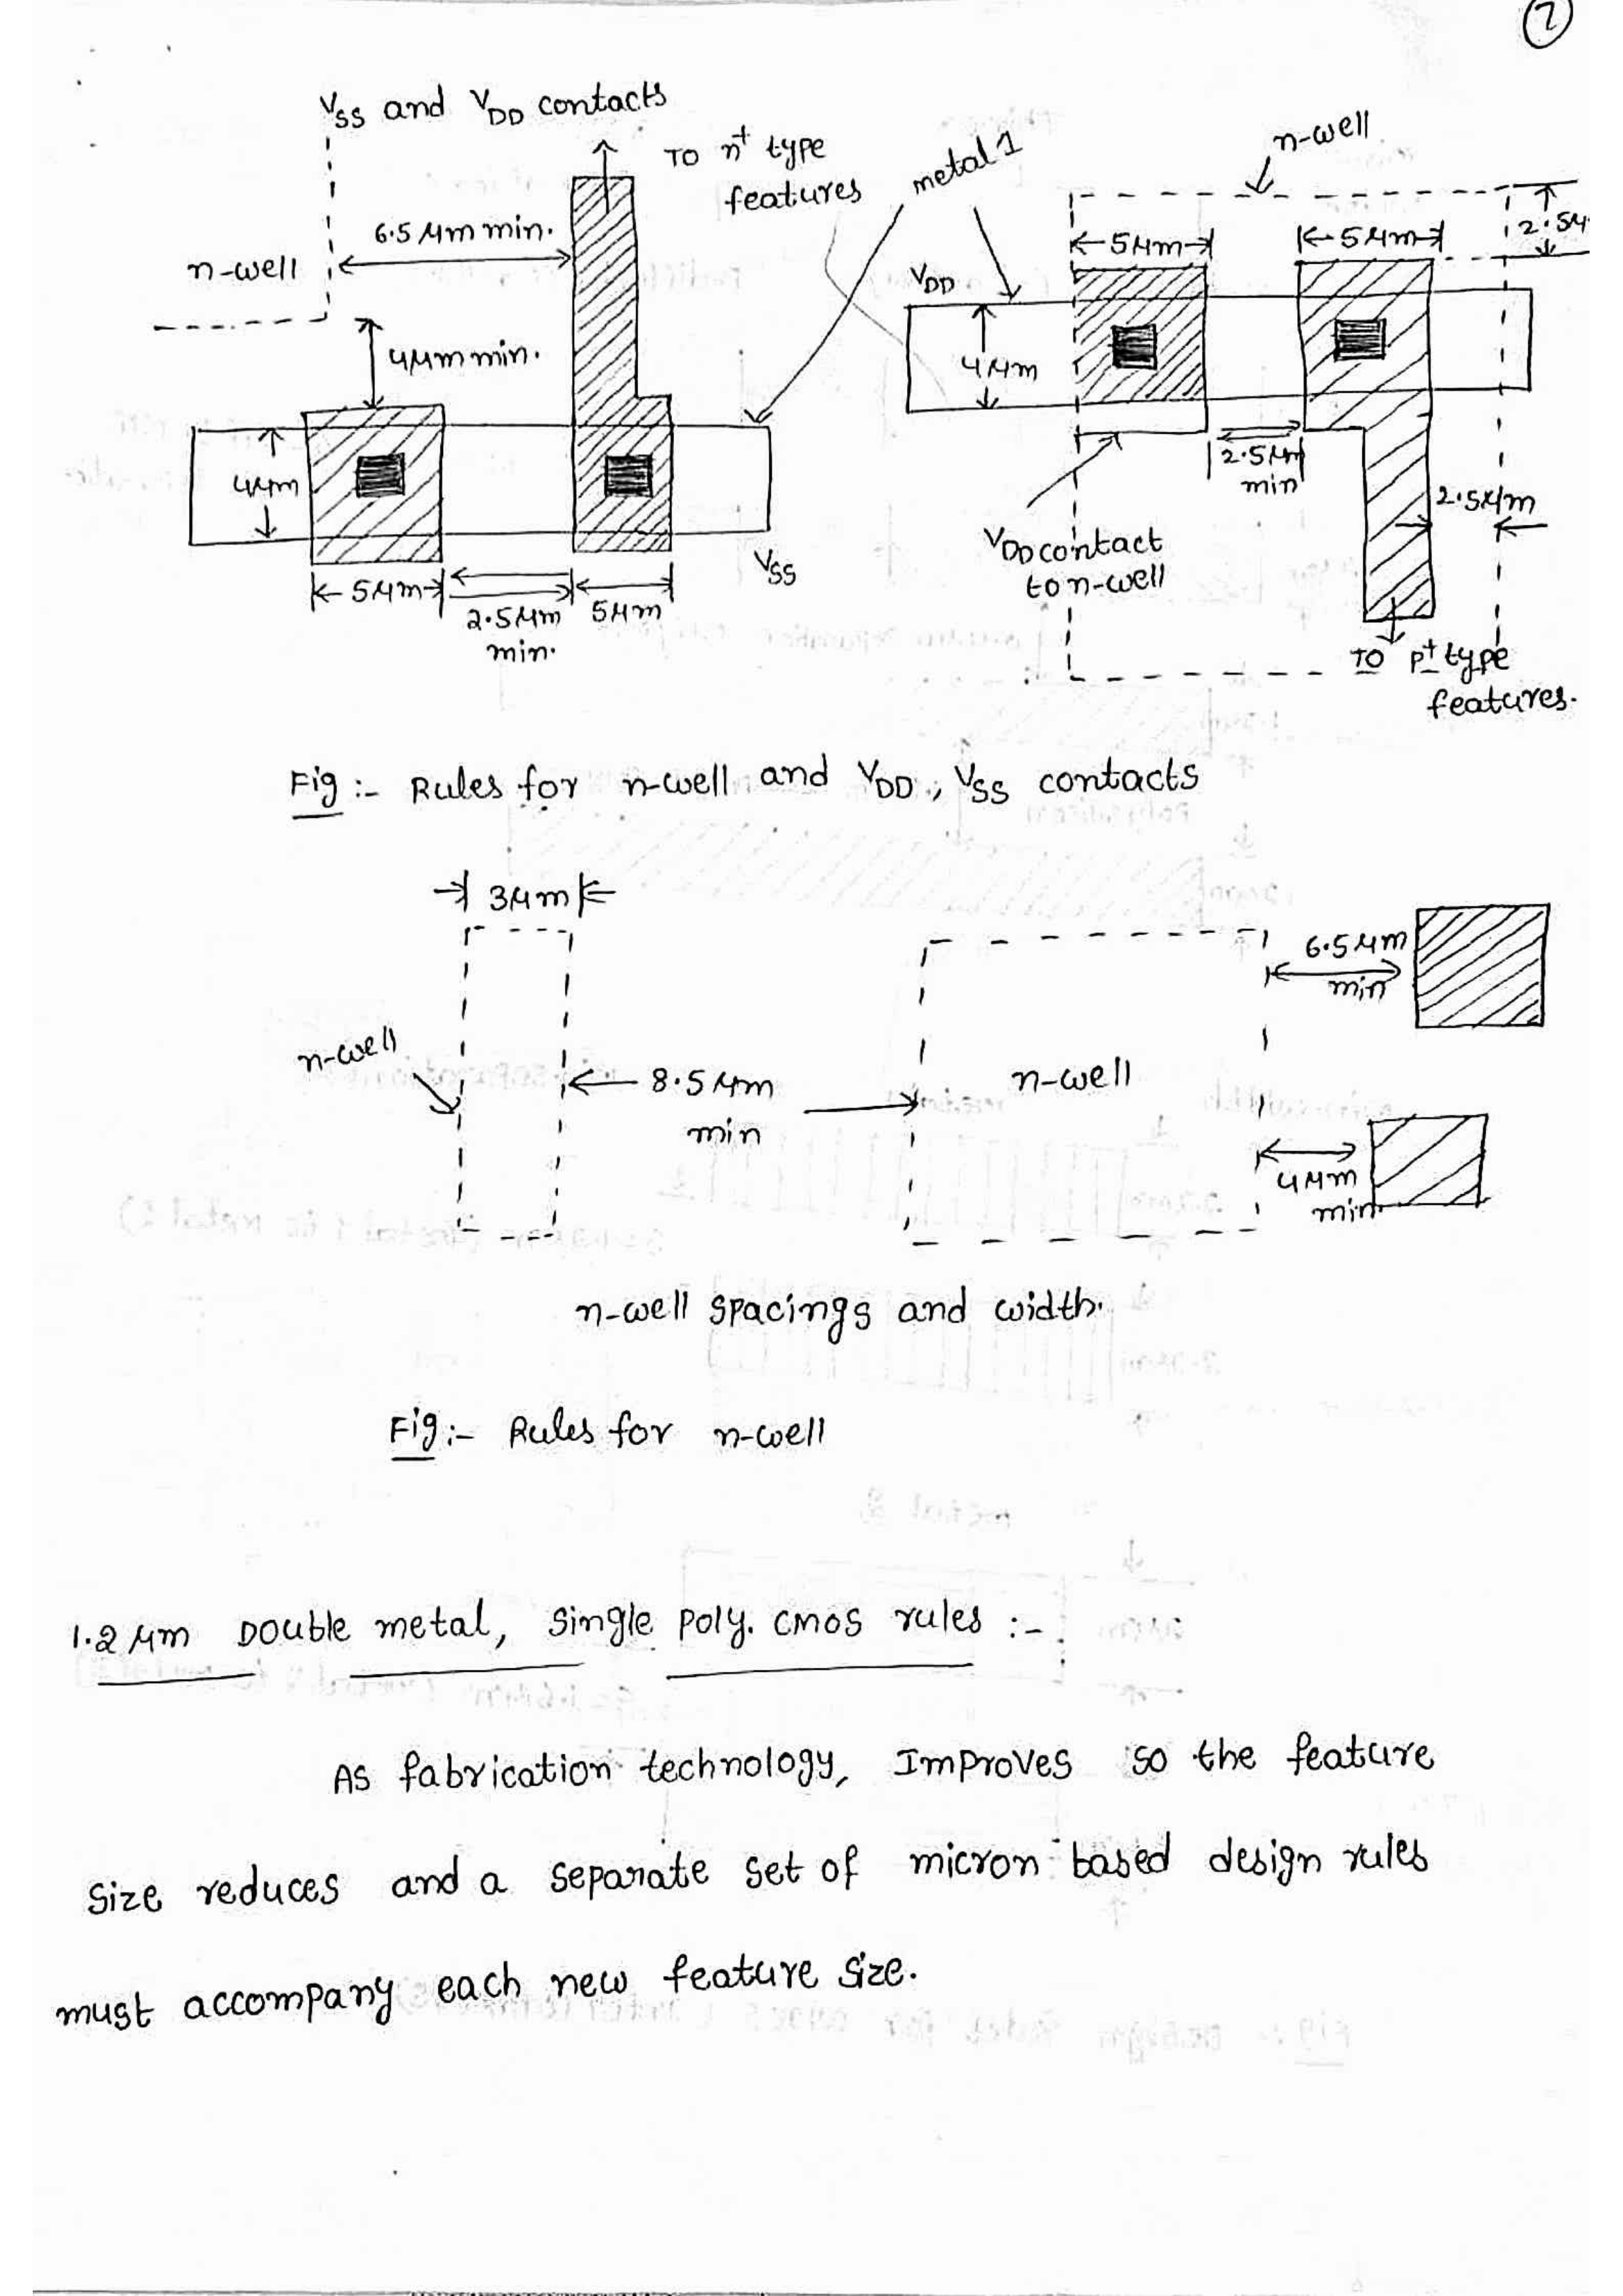 7
VSS and VDD contacts
TO n+ type
features
metal 1
n-well
6.5 μm min.
n-well
4μm min.
4μm
5μm
2.5μm
min.
5μm
VSS
5μm
5μm
VDD
4μm
2.5μm
min
2.5μm
VDD contact
to n-well
TO p+ type
features.
Fig :- Rules for n-well and VDD, VSS contacts
3μm
6.5μm
min
n-well
8.5μm
min
n-well
4μm
min.
n-well spacings and width.
Fig :- Rules for n-well
1.2 μm Double metal, single poly. CMOS rules :-
As fabrication technology, Improves so the feature
size reduces and a separate set of micron based design rules
must accompany each new feature size.